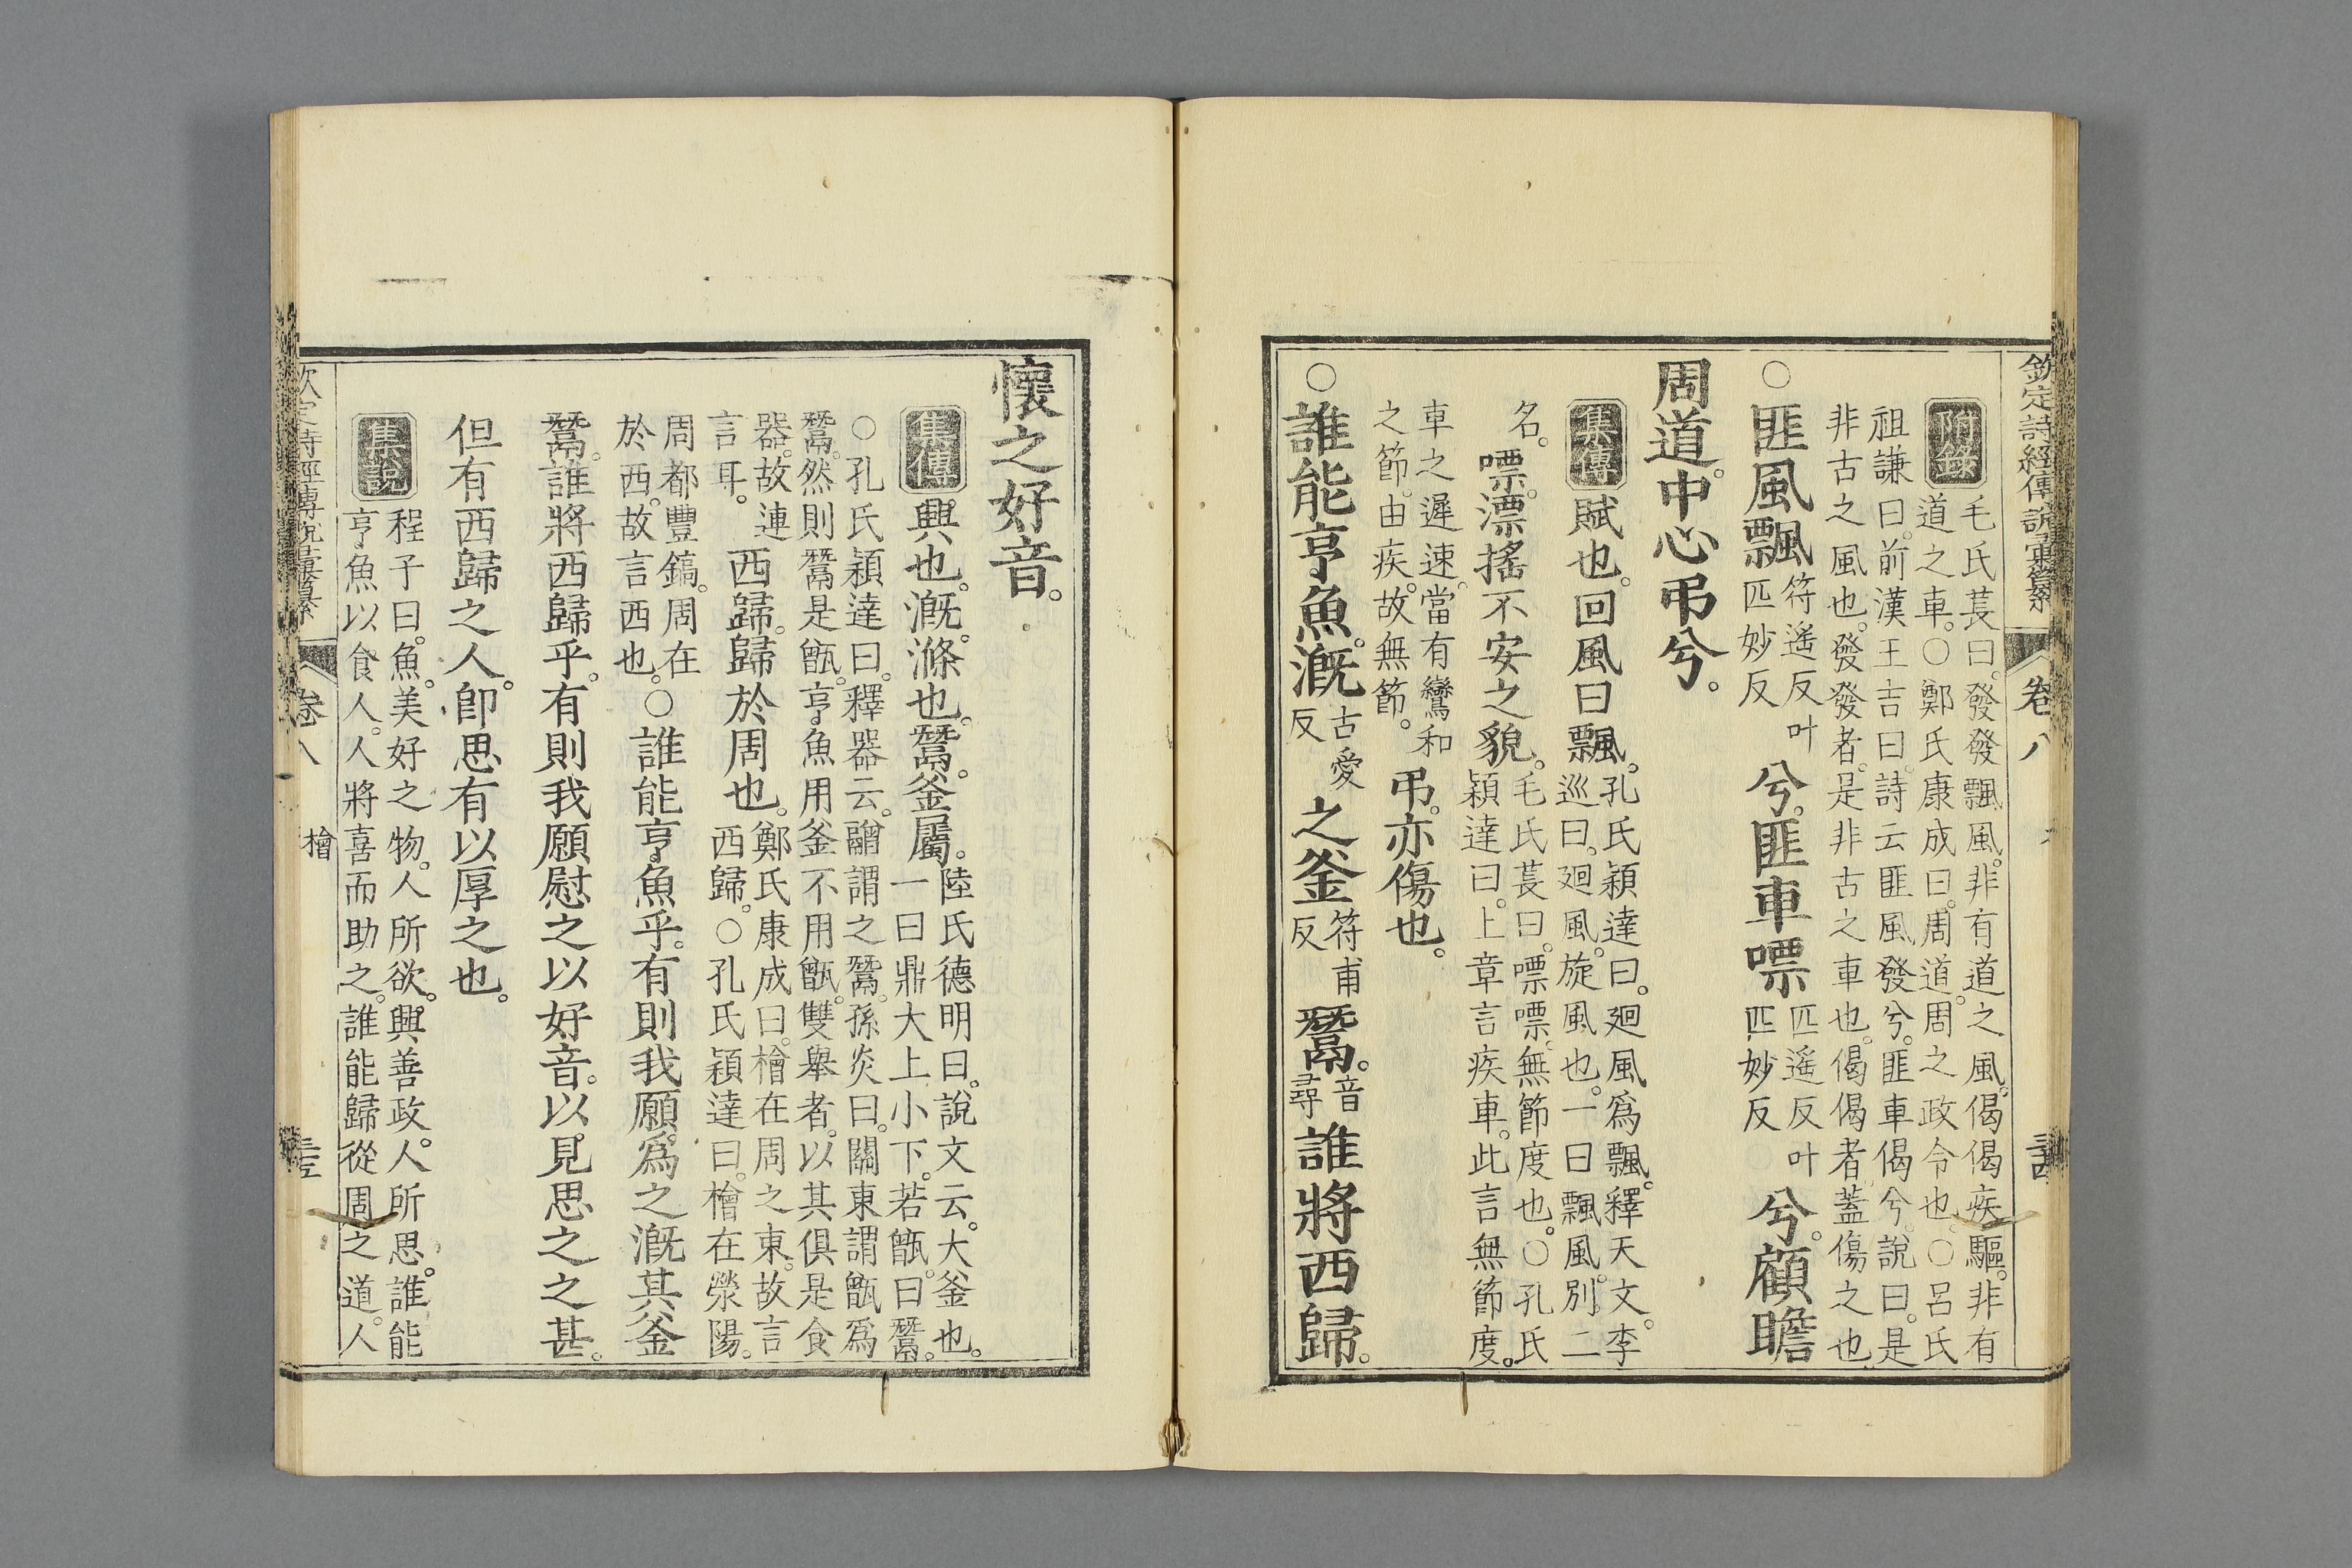 欽定詩經傳說彙纂 卷八
附錄
毛氏萇曰。發發飄風。非有道之風。偈偈疾驅。非有
道之車。○鄭氏康成曰。周道。周之政令也。○呂氏
祖謙曰。前漢王吉曰。詩云匪風發兮。匪車偈兮。說曰。是
非古之風也。發發者。是非古之車也。偈偈者。蓋傷之也
○匪風飄符遙反叶匹妙反兮。匪車嘌匹遙反叶匹妙反兮。顧瞻
周道。中心弔兮。
集傳賦也。回風曰飄。孔氏穎達曰。廻風爲飄。釋天文。李
巡曰。廻風。旋風也。一曰飄風。別二
名。嘌。漂搖不安之貌。毛氏萇曰。嘌嘌。無節度也。○孔氏
穎達曰。上章言疾車。此言無節度。
車之遲速。當有鸞和
之節。由疾。故無節。弔。亦傷也。
○誰能亨魚。溉古愛反之釜符甫反鬵。音尋誰將西歸。
懷之好音。
集傳興也。溉。滌也。鬵。釜屬。陸氏德明曰。說文云。大釜也。
一曰鼎大上小下。若甑。曰鬵。
○孔氏穎達曰。釋器云。䰝謂之鬵。孫炎曰。關東謂甑爲
鬵。然則鬵是甑。亨魚用釜不用甑。雙舉者。以其俱是食
器。故連
言耳。西歸。歸於周也。鄭氏康成曰。檜在周之東。故言
西歸。○孔氏穎達曰。檜在滎陽。
周都豐鎬。周在
於西。故言西也。○誰能亨魚乎。有則我願爲之溉其釜
鬵。誰將西歸乎。有則我願慰之以好音。以見思之之甚。
但有西歸之人。卽思有以厚之也。
集說
程子曰。魚。美好之物。人所欲。興善政。人所思。誰能
亨魚以食人。人將喜而助之。誰能歸從周之道。人
欽定詩經傳說彙纂 卷八 檜